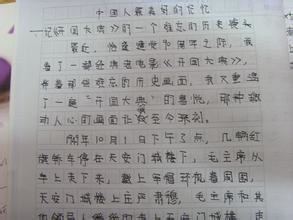 中国人最美好的记忆
——记《开国大典》的一个难忘的历史镜头
最近，恰逢建党90周年之际，我
看了一部经典老电影《开国大典》，
看着那些难忘的历史画面，我又重温
了一遍“开国大典”的喜悦，那种激
动人心的画面让我至今深刻。
1949年10月1日下午3点，几辆红
旗轿车停在天安门城楼下，毛主席从
车上走下来，戴上军帽环执着周围，
天安门城楼上庄严肃穆，毛主席和其